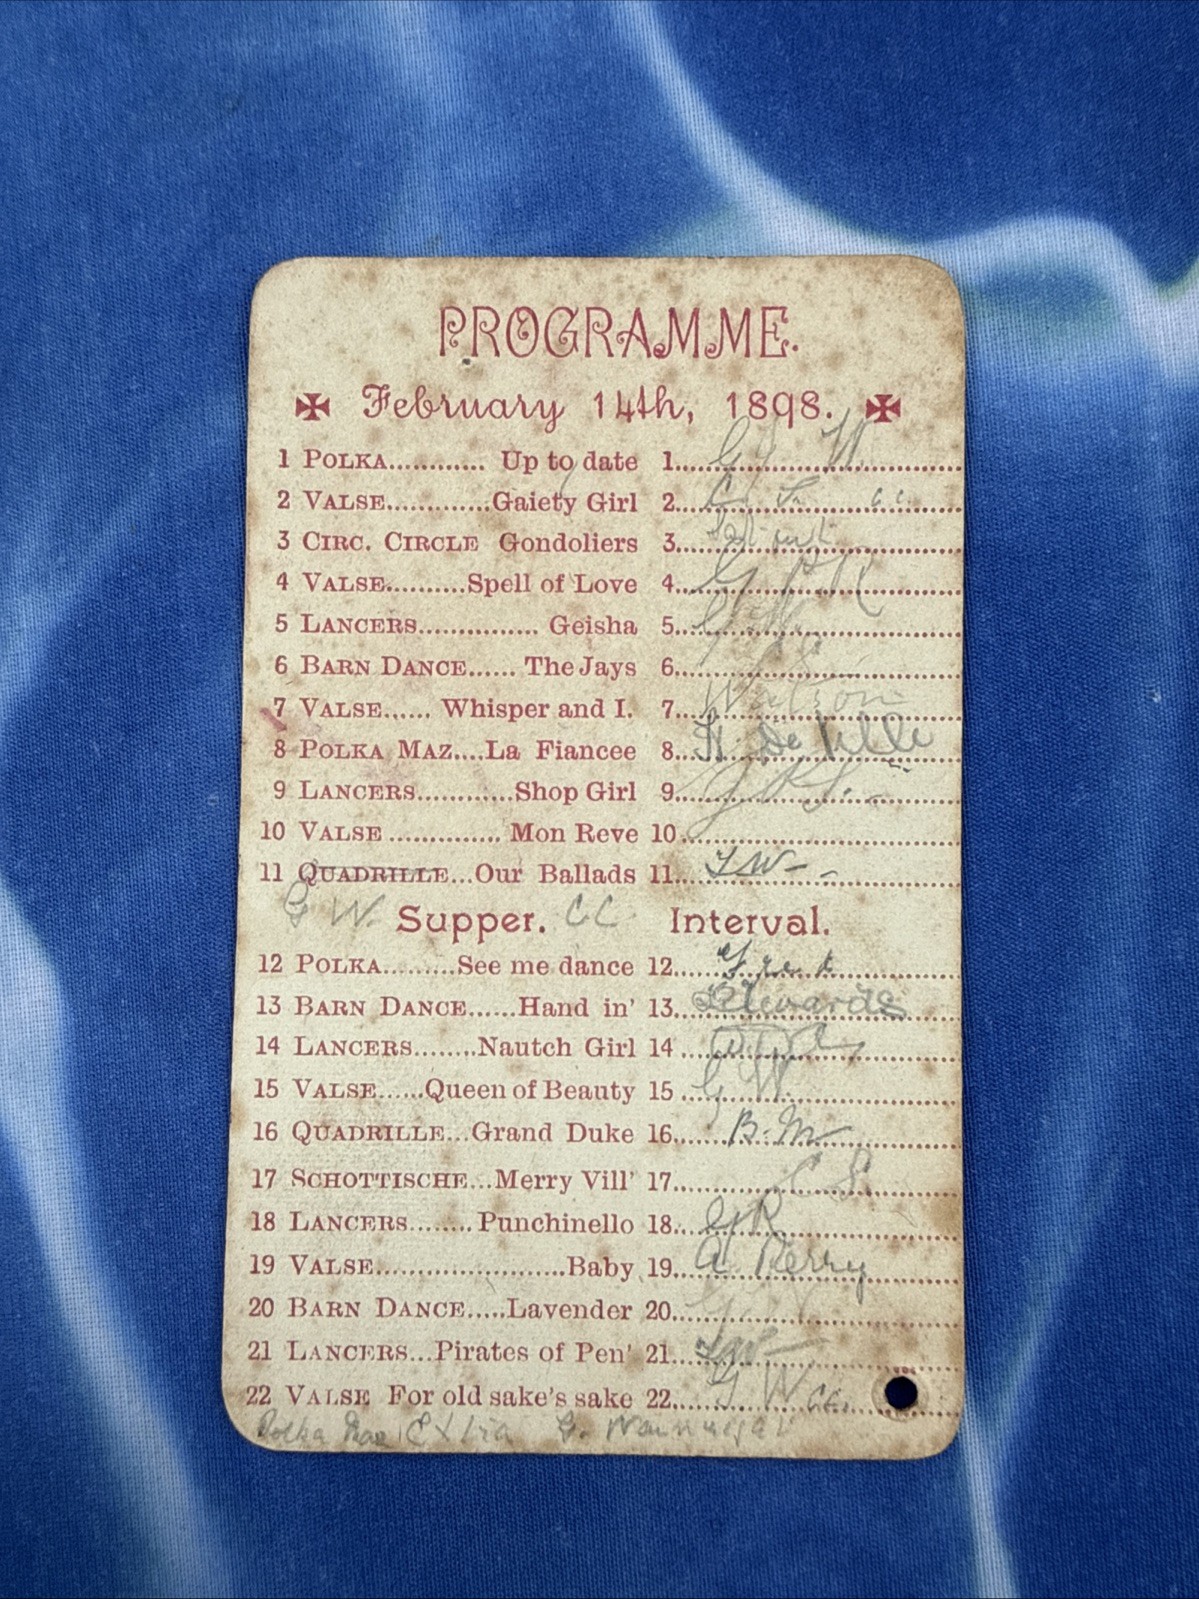 PROGRAMME.
✠ February 14th, 1898. ✠
1 POLKA............ Up to date 1..... G W
2 VALSE.............Gaiety Girl 2..... C.C.
3 CIRC. CIRCLE Gondoliers 3.....
4 VALSE..........Spell of Love 4.....
5 LANCERS............... Geisha 5.....
6 BARN DANCE...... The Jays 6.....
7 VALSE...... Whisper and I. 7..... Watson
8 POLKA MAZ....La Fiancee 8..... H. De Ville
9 LANCERS............Shop Girl 9.....
10 VALSE ............. Mon Reve 10.....
11 QUADRILLE...Our Ballads 11..... F W
G W. Supper. CC Interval.
12 POLKA.........See me dance 12..... Fred
13 BARN DANCE......Hand in' 13..... Edwards
14 LANCERS........Nautch Girl 14.....
15 VALSE......Queen of Beauty 15..... G W.
16 QUADRILLE...Grand Duke 16..... B. M
17 SCHOTTISCHE...Merry Vill' 17.....
18 LANCERS........Punchinello 18..... G R
19 VALSE......................Baby 19..... A Perry
20 BARN DANCE.....Lavender 20.....
21 LANCERS...Pirates of Pen' 21.....
22 VALSE For old sake's sake 22..... G W
Polka Maz Extra G.